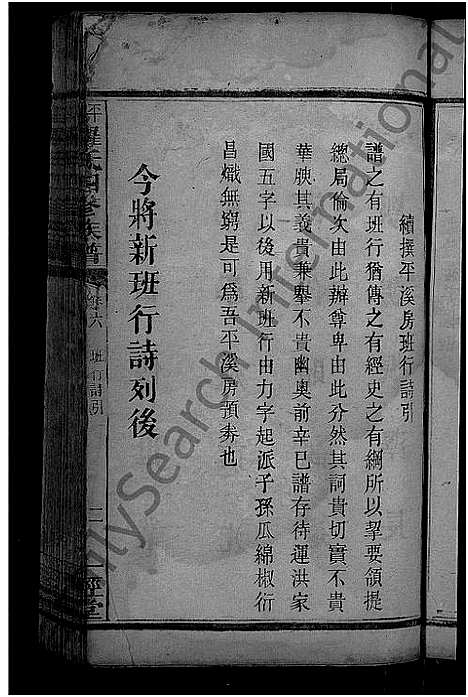 續撰平溪房班行詩引
譜之有班行猶傳之有經史之有綱所以挈要領提
總局倫次由此辦尊卑由此分然其詞貴切實不貴
華駚其義貴兼舉不貴幽奧前辛巳譜存待運洪家
國五字以後用新班行由力字起派子孫瓜綿椒衍
昌熾無窮是可為吾平溪房預券也
今將新班行詩列後
平 羅氏四修族譜
卷六 班行詩引
二
一經堂
FamilySearch International